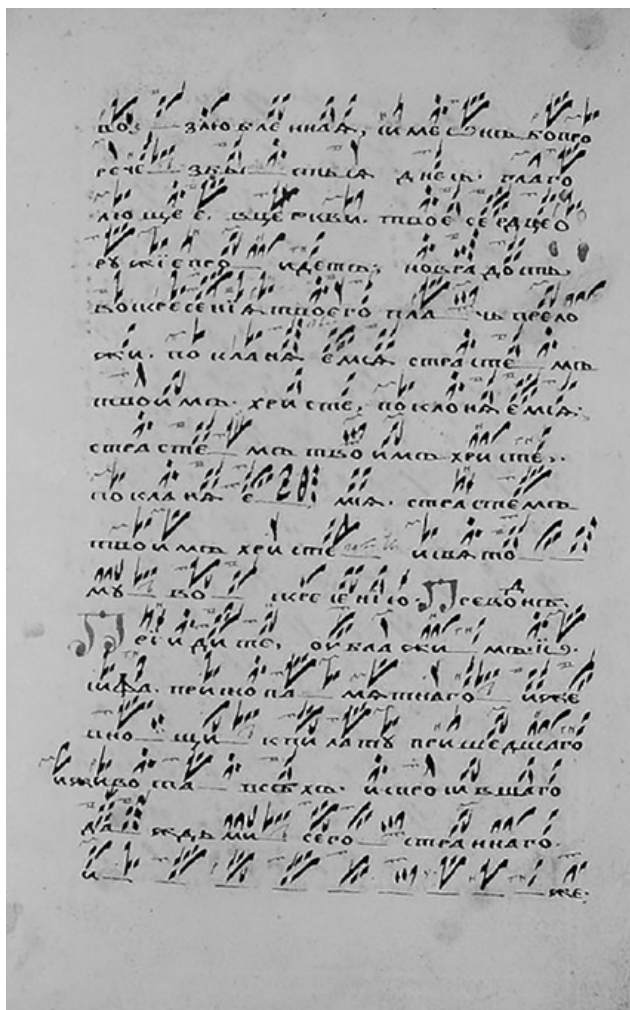 воз злюбленная, симеѡнъ бо про
рече збы сться днесь. глаго
люще е, вцеркви. твое сердце ѻ
ружїе про идетъ; но врадость
воскресенїя твоего пла чь прело
жи. покланя емься страсте мъ
твоимъ христе, поклоняемься.
страсте мъ твоимъ христе,.
покланя е мься. страстемъ
твоимъ христе исвято
му во скресенїю. Преводнъ.
Прїидите, оублажи мъ їѡ
сифа. присно па мятнаго иже
вно щи кпилату пришедшаго
иживота всѣхъ. испросившаго
да ждьми сего страннаго.
и же.